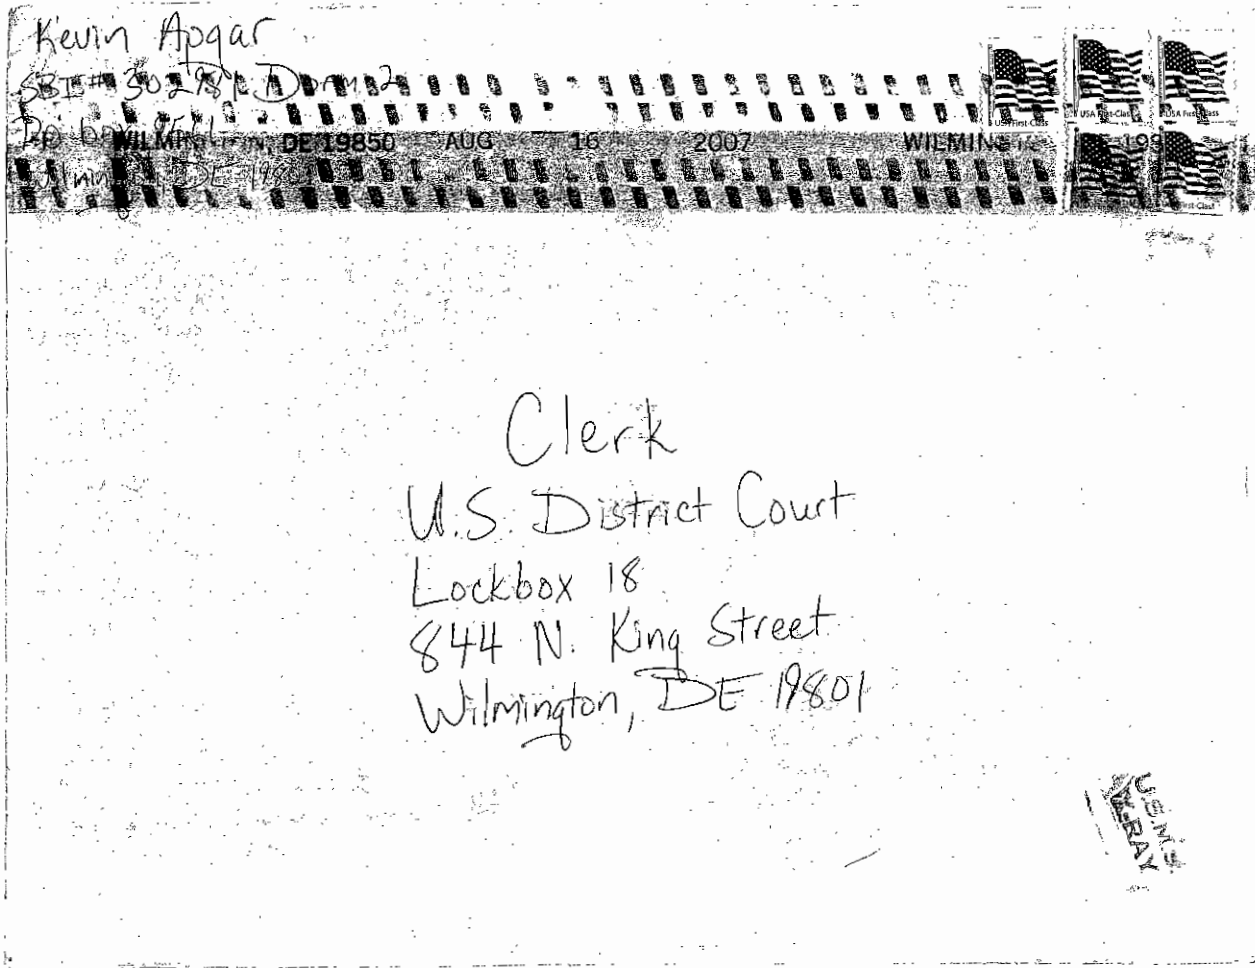 Kevin Apgar
SBI# 302981 Dorm 2
PO box
WILMINGTON, DE 19850 AUG 16 2007 WILMING
Wilmington, DE 19801
USA First-Class
USA First-Class
USA First-Class
First-Class
Clerk
U.S. District Court
Lockbox 18
844 N. King Street
Wilmington, DE 19801
U.S.M.S
X-RAY